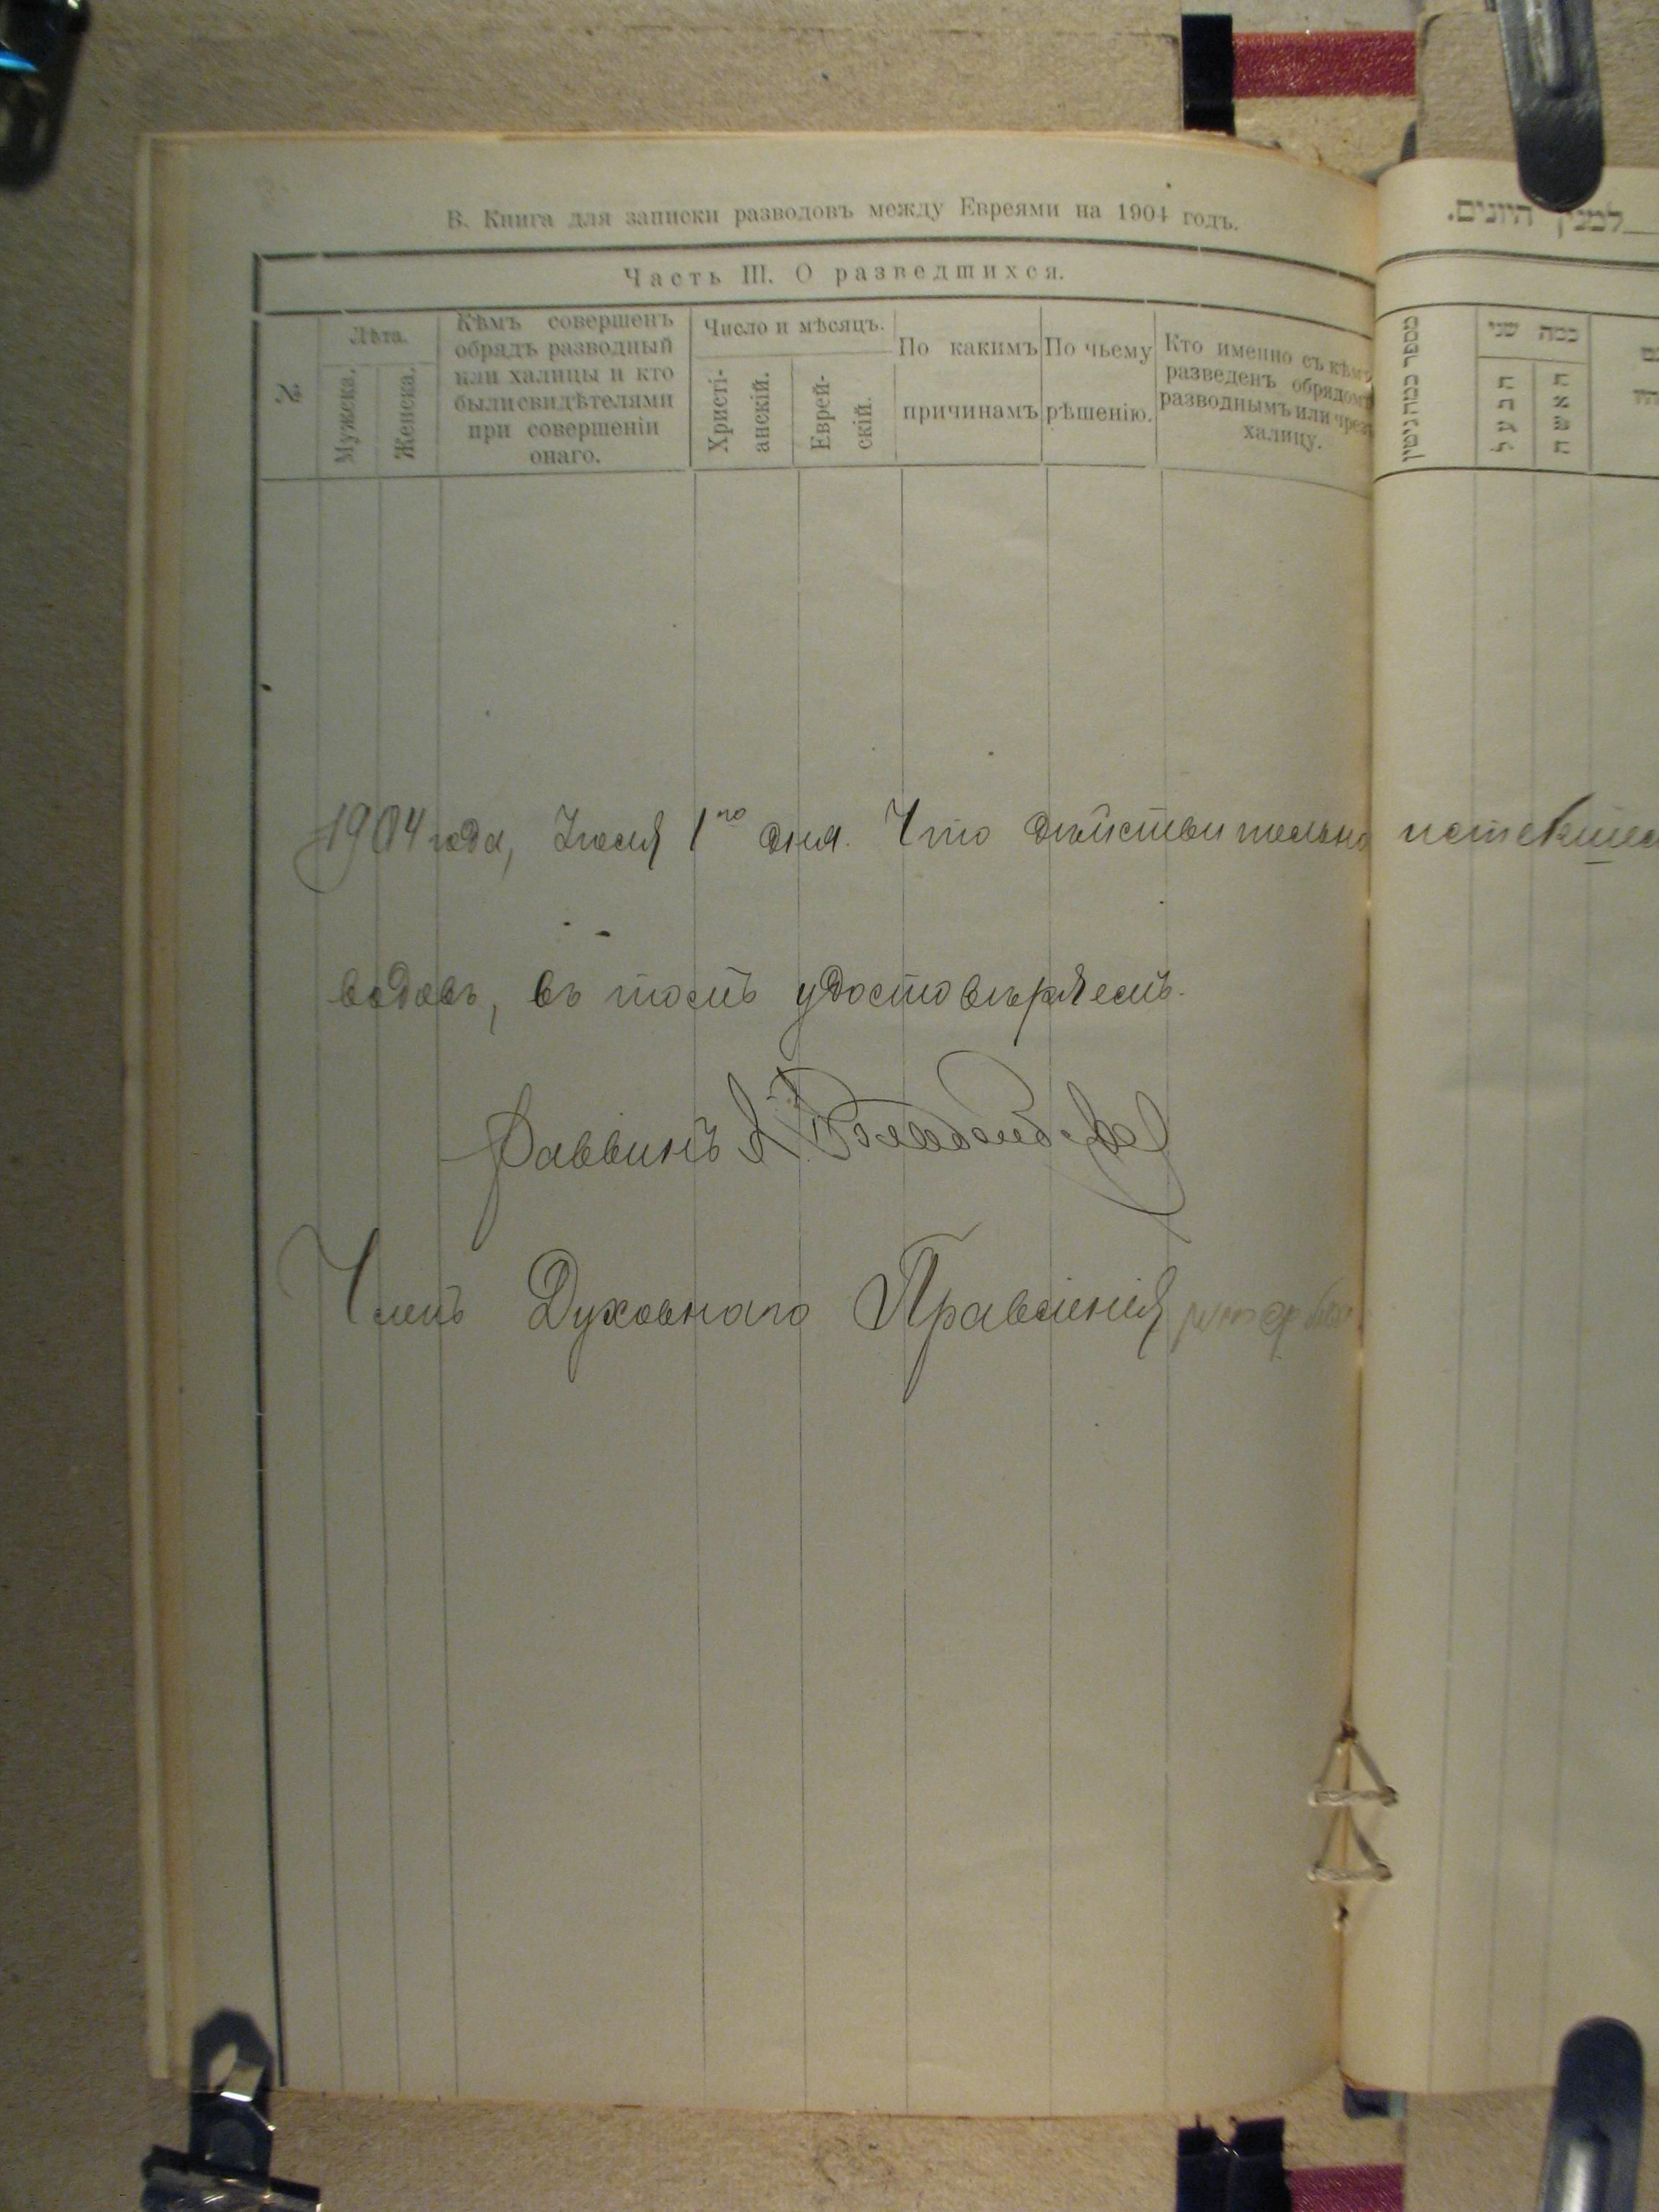 В. Книга для записки разводовъ между Евреями на 1904 годъ.
Часть III. О разведшихся.
№
Лѣта.
Мужска.
Женска.
Кѣмъ совершенъ
обрядъ разводный
или халицы и кто
были свидѣтелями
при совершеніи
онаго.
Число и мѣсяцъ.
Христі-
анскій.
Еврей-
скій.
По какимъ
причинамъ
По чьему
рѣшенію.
Кто именно съ кѣмъ
разведенъ обрядомъ
разводнымъ или чрезъ
халицу.
1904 года, Іюля 1го дня. Что дѣйствительно
водовъ, въ томъ удостовѣряемъ.
Раввинъ
Членъ Духовнаго Правленія
למנין היונים.
מספר כמה גיטין
כמה שני
הבעל
האשה